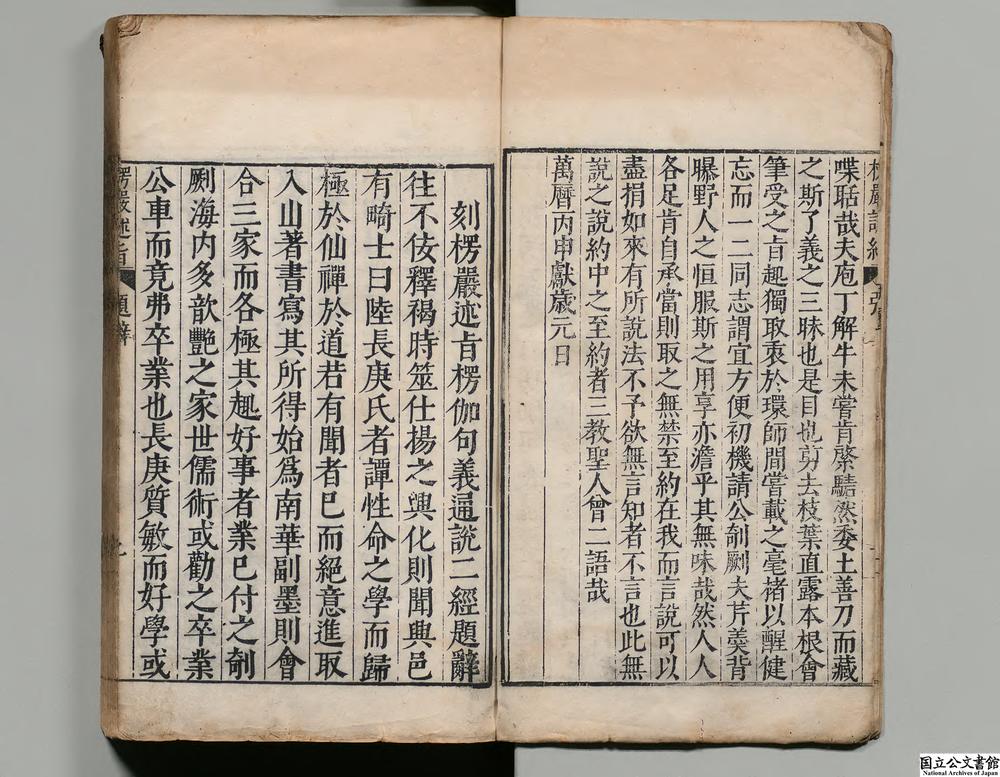 喋聒哉夫庖丁解牛未嘗肯綮騞然委土善刀而藏
之斯了義之三昧也是目也剪去枝葉直露本根會
筆受之㫖趣獨取衷於環師間嘗載之毫褚以醒健
忘而一二同志謂宜方便初機請公剞劂夫芹羹背
曝野人之恒服斯之用享亦澹乎其無味哉然人人
各足肯自承當則取之無禁至約在我而言說可以
盡捐如來有所說法不予欲無言知者不言也此無
說之說約中之至約者三教聖人曾二語哉
萬曆丙申獻歲元日
刻楞嚴述㫖楞伽句義通說二經題辭
往不佞釋褐時筮仕揚之興化則聞興邑
有畸士曰陸長庚氏者譚性命之學而歸
極於仙禪於道若有聞者已而絕意進取
入山著書寫其所得始爲南華副墨則會
合三家而各極其趣好事者業已付之剞
劂海内多歆艷之家世儒術或勸之卒業
公車而竟弗卒業也長庚質敏而好學或
楞嚴述㫖
題辭
国立公文書館
National Archives of Japan